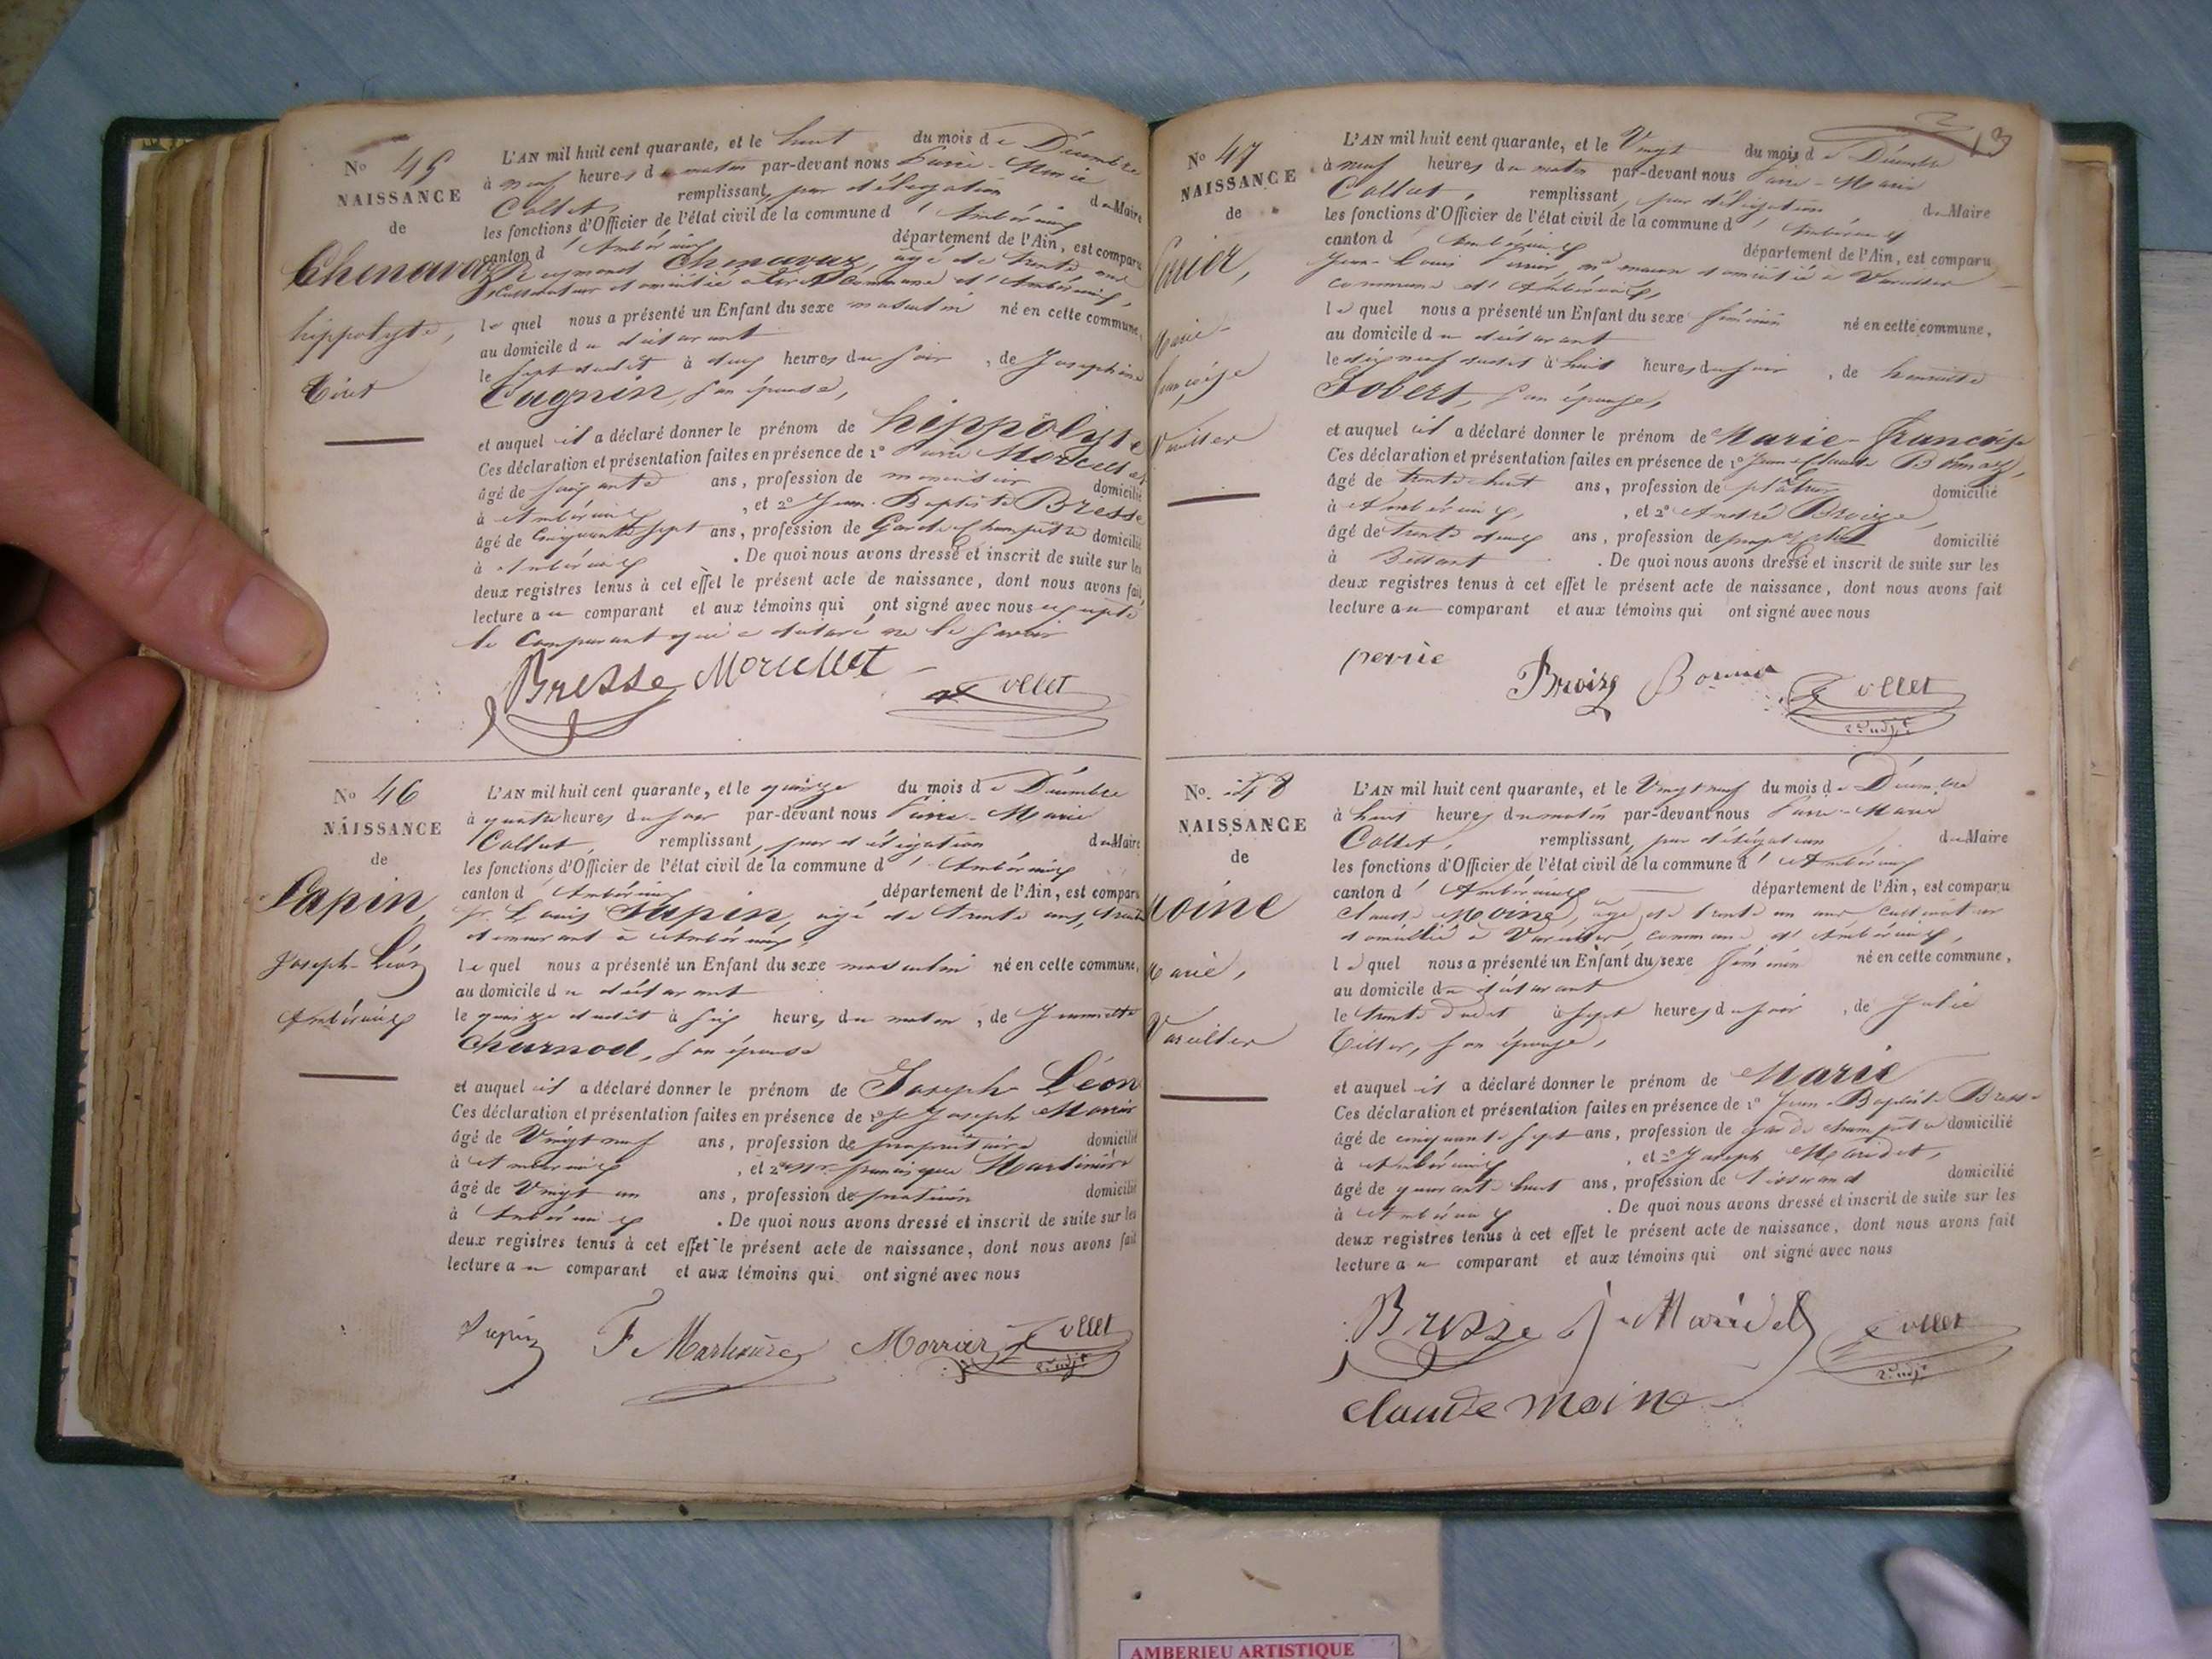 No 45
NAISSANCE
de
Chenavaz
hippolyte,
Tiret
L'AN mil huit cent quarante, et le huit du mois de Décembre
à neuf heures du matin par-devant nous Pierre-Marie
Collet, remplissant, par délégation du Maire
les fonctions d'Officier de l'état civil de la commune d'Ambérieux
canton d'Ambérieux département de l'Ain, est comparu
Reymond Chenavaz, âgé de trente
Cultivateur domicilié à Tiret Commune d'Ambérieux,
lequel nous a présenté un Enfant du sexe masculin né en cette commune,
au domicile du déclarant
le sept dudit à deux heures du soir, de Josephine
Cagnin, son épouse,
et auquel il a déclaré donner le prénom de hippolyte
Ces déclaration et présentation faites en présence de 1° Pierre Morellet
âgé de soixante ans, profession de menuisier domicilié
à Ambérieux, et 2° Jean-Baptiste Bresse
âgé de Cinquante sept ans, profession de Garde Champêtre domicilié
à Ambérieux. De quoi nous avons dressé et inscrit de suite sur les
deux registres tenus à cet effet le présent acte de naissance, dont nous avons fait
lecture au comparant et aux témoins qui ont signé avec nous excepté
le Comparant qui a déclaré ne le savoir
Bresse Morellet Collet
No 46
NAISSANCE
de
Sapin,
Joseph-Léon
Ambérieux
L'AN mil huit cent quarante, et le quinze du mois de Décembre
à quatre heures du soir par-devant nous Pierre-Marie
Collet, remplissant, par délégation du Maire
les fonctions d'Officier de l'état civil de la commune d'Ambérieux
canton d'Ambérieux département de l'Ain, est comparu
Louis Sapin, âgé de trente ans,
demeurant à Ambérieux,
lequel nous a présenté un Enfant du sexe masculin né en cette commune,
au domicile du déclarant
le quinze dudit à six heures du matin, de Jeannette
Charnod, son épouse
et auquel il a déclaré donner le prénom de Joseph Léon
Ces déclaration et présentation faites en présence de 1° Joseph Morrier
âgé de Vingt neuf ans, profession de propriétaire domicilié
à Ambérieux, et 2° Mr. françisque Martinière
âgé de Vingt un ans, profession de praticien domicilié
à Ambérieux. De quoi nous avons dressé et inscrit de suite sur les
deux registres tenus à cet effet le présent acte de naissance, dont nous avons fait
lecture au comparant et aux témoins qui ont signé avec nous
Sapin F Martinière Morrier Collet
2e adjt
13
No 47
NAISSANCE
de
Perrier,
Marie-
françoise
Vareilles
L'AN mil huit cent quarante, et le Vingt du mois de Décembre
à neuf heures du matin par-devant nous Pierre-Marie
Collet, remplissant, par délégation du Maire
les fonctions d'Officier de l'état civil de la commune d'Ambérieux
canton d'Ambérieux département de l'Ain, est comparu
Jean-Louis Perrier, md maçon domicilié à Vareilles
commune d'Ambérieux,
lequel nous a présenté un Enfant du sexe féminin né en cette commune,
au domicile du déclarant
le dix neuf dudit à huit heures du soir, de henriette
Jobert, son épouse,
et auquel il a déclaré donner le prénom de Marie-françoise
Ces déclaration et présentation faites en présence de 1° Jean-Claude
âgé de trente huit ans, profession de plâtrier domicilié
à Ambérieux, et 2° André Broize,
âgé de trente deux ans, profession de domicilié
à Bettant. De quoi nous avons dressé et inscrit de suite sur les
deux registres tenus à cet effet le présent acte de naissance, dont nous avons fait
lecture au comparant et aux témoins qui ont signé avec nous
perrié Broize Collet
2e adjt
No 48
NAISSANCE
de
Moine
Marie,
Vareilles
L'AN mil huit cent quarante, et le Vingt neuf du mois de Décembre
à huit heures du matin par-devant nous Pierre-Marie
Collet, remplissant, par délégation du Maire
les fonctions d'Officier de l'état civil de la commune d'Ambérieux
canton d'Ambérieux département de l'Ain, est comparu
Claude Moine, âgé de trente un ans, cultivateur
domicilié à Vareilles, commune d'Ambérieux,
lequel nous a présenté un Enfant du sexe féminin né en cette commune,
au domicile du déclarant
le trente dudit à sept heures du soir, de Julie
Tiller, son épouse,
et auquel il a déclaré donner le prénom de Marie
Ces déclaration et présentation faites en présence de 1° Jean-Baptiste Bresse
âgé de cinquante sept ans, profession de garde champêtre domicilié
à Ambérieux, et 2° Joseph Maridet,
âgé de quarante huit ans, profession de tisserand domicilié
à Ambérieux. De quoi nous avons dressé et inscrit de suite sur les
deux registres tenus à cet effet le présent acte de naissance, dont nous avons fait
lecture au comparant et aux témoins qui ont signé avec nous
Bresse J Maridet Collet
2e adjt
claude moine
AMBERIEU ARTISTIQUE